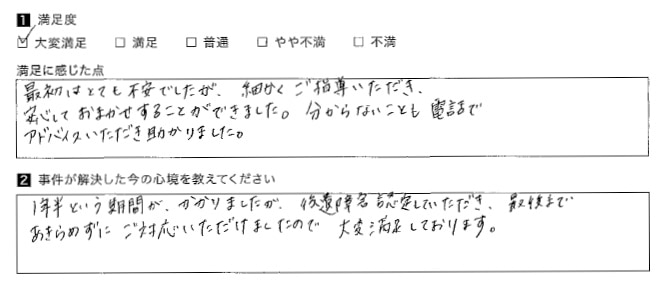 1 満足度
☑ 大変満足 □ 満足 □ 普通 □ やや不満 □ 不満
満足に感じた点
最初はとても不安でしたが、細かくご指導いただき、
安心しておまかせすることができました。分からないことも電話で
アドバイスいただき助かりました。
2 事件が解決した今の心境を教えてください
1年半という期間が、かかりましたが、後遺障害認定していただき、最後まで
あきらめずにご対応いただけましたので大変満足しております。